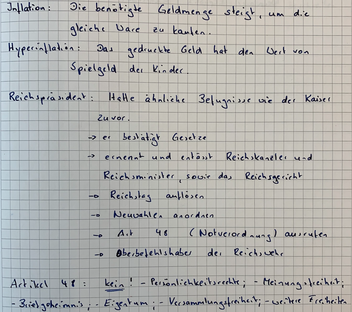 Inflation: Die benötigte Geldmenge steigt, um die
gleiche Ware zu kaufen.
Hyperinflation: Das gedruckte Geld hat den Wert von
Spielgeld der Kinder.
Reichspräsident: Hatte ähnliche Befugnisse wie der Kaiser
zuvor.
→ er bestätigt Gesetze
→ ernennt und entlässt Reichskanzler und
Reichsminister, sowie das Reichsgericht
→ Reichstag auflösen
→ Neuwahlen anordnen
→ Art 48 (Notverordnung) ausrufen
→ Oberbefehlshaber der Reichswehr
Artikel 48: kein! - Persönlichkeitsrechte; - Meinungsfreiheit;
- Briefgeheimnis; - Eigentum; - Versammlungsfreiheit; - weitere Freiheiten